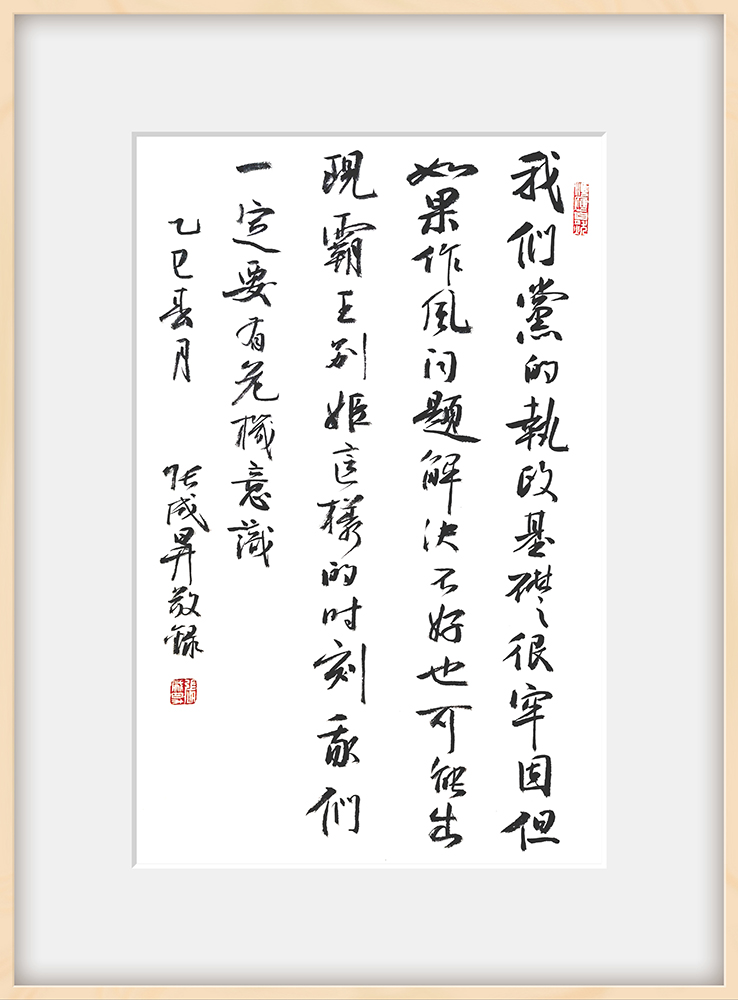 我们黨的執政基礎很牢固但
如果作風问題解决不好也可能出
現霸王别姬這樣的时刻我們
一定要有危機意識
乙巳春月 张成昇敬録